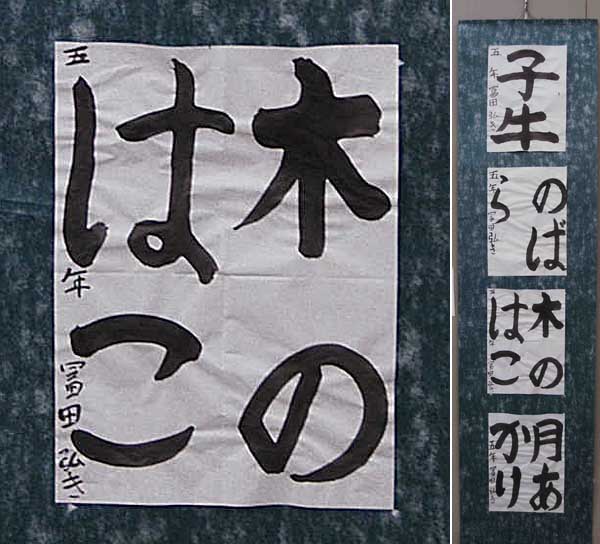 木の
はこ
五年 冨田弘き
子牛
五年 冨田弘き
のば
ら
五年 冨田弘き
木の
はこ
月あ
かり
五年 冨田弘き